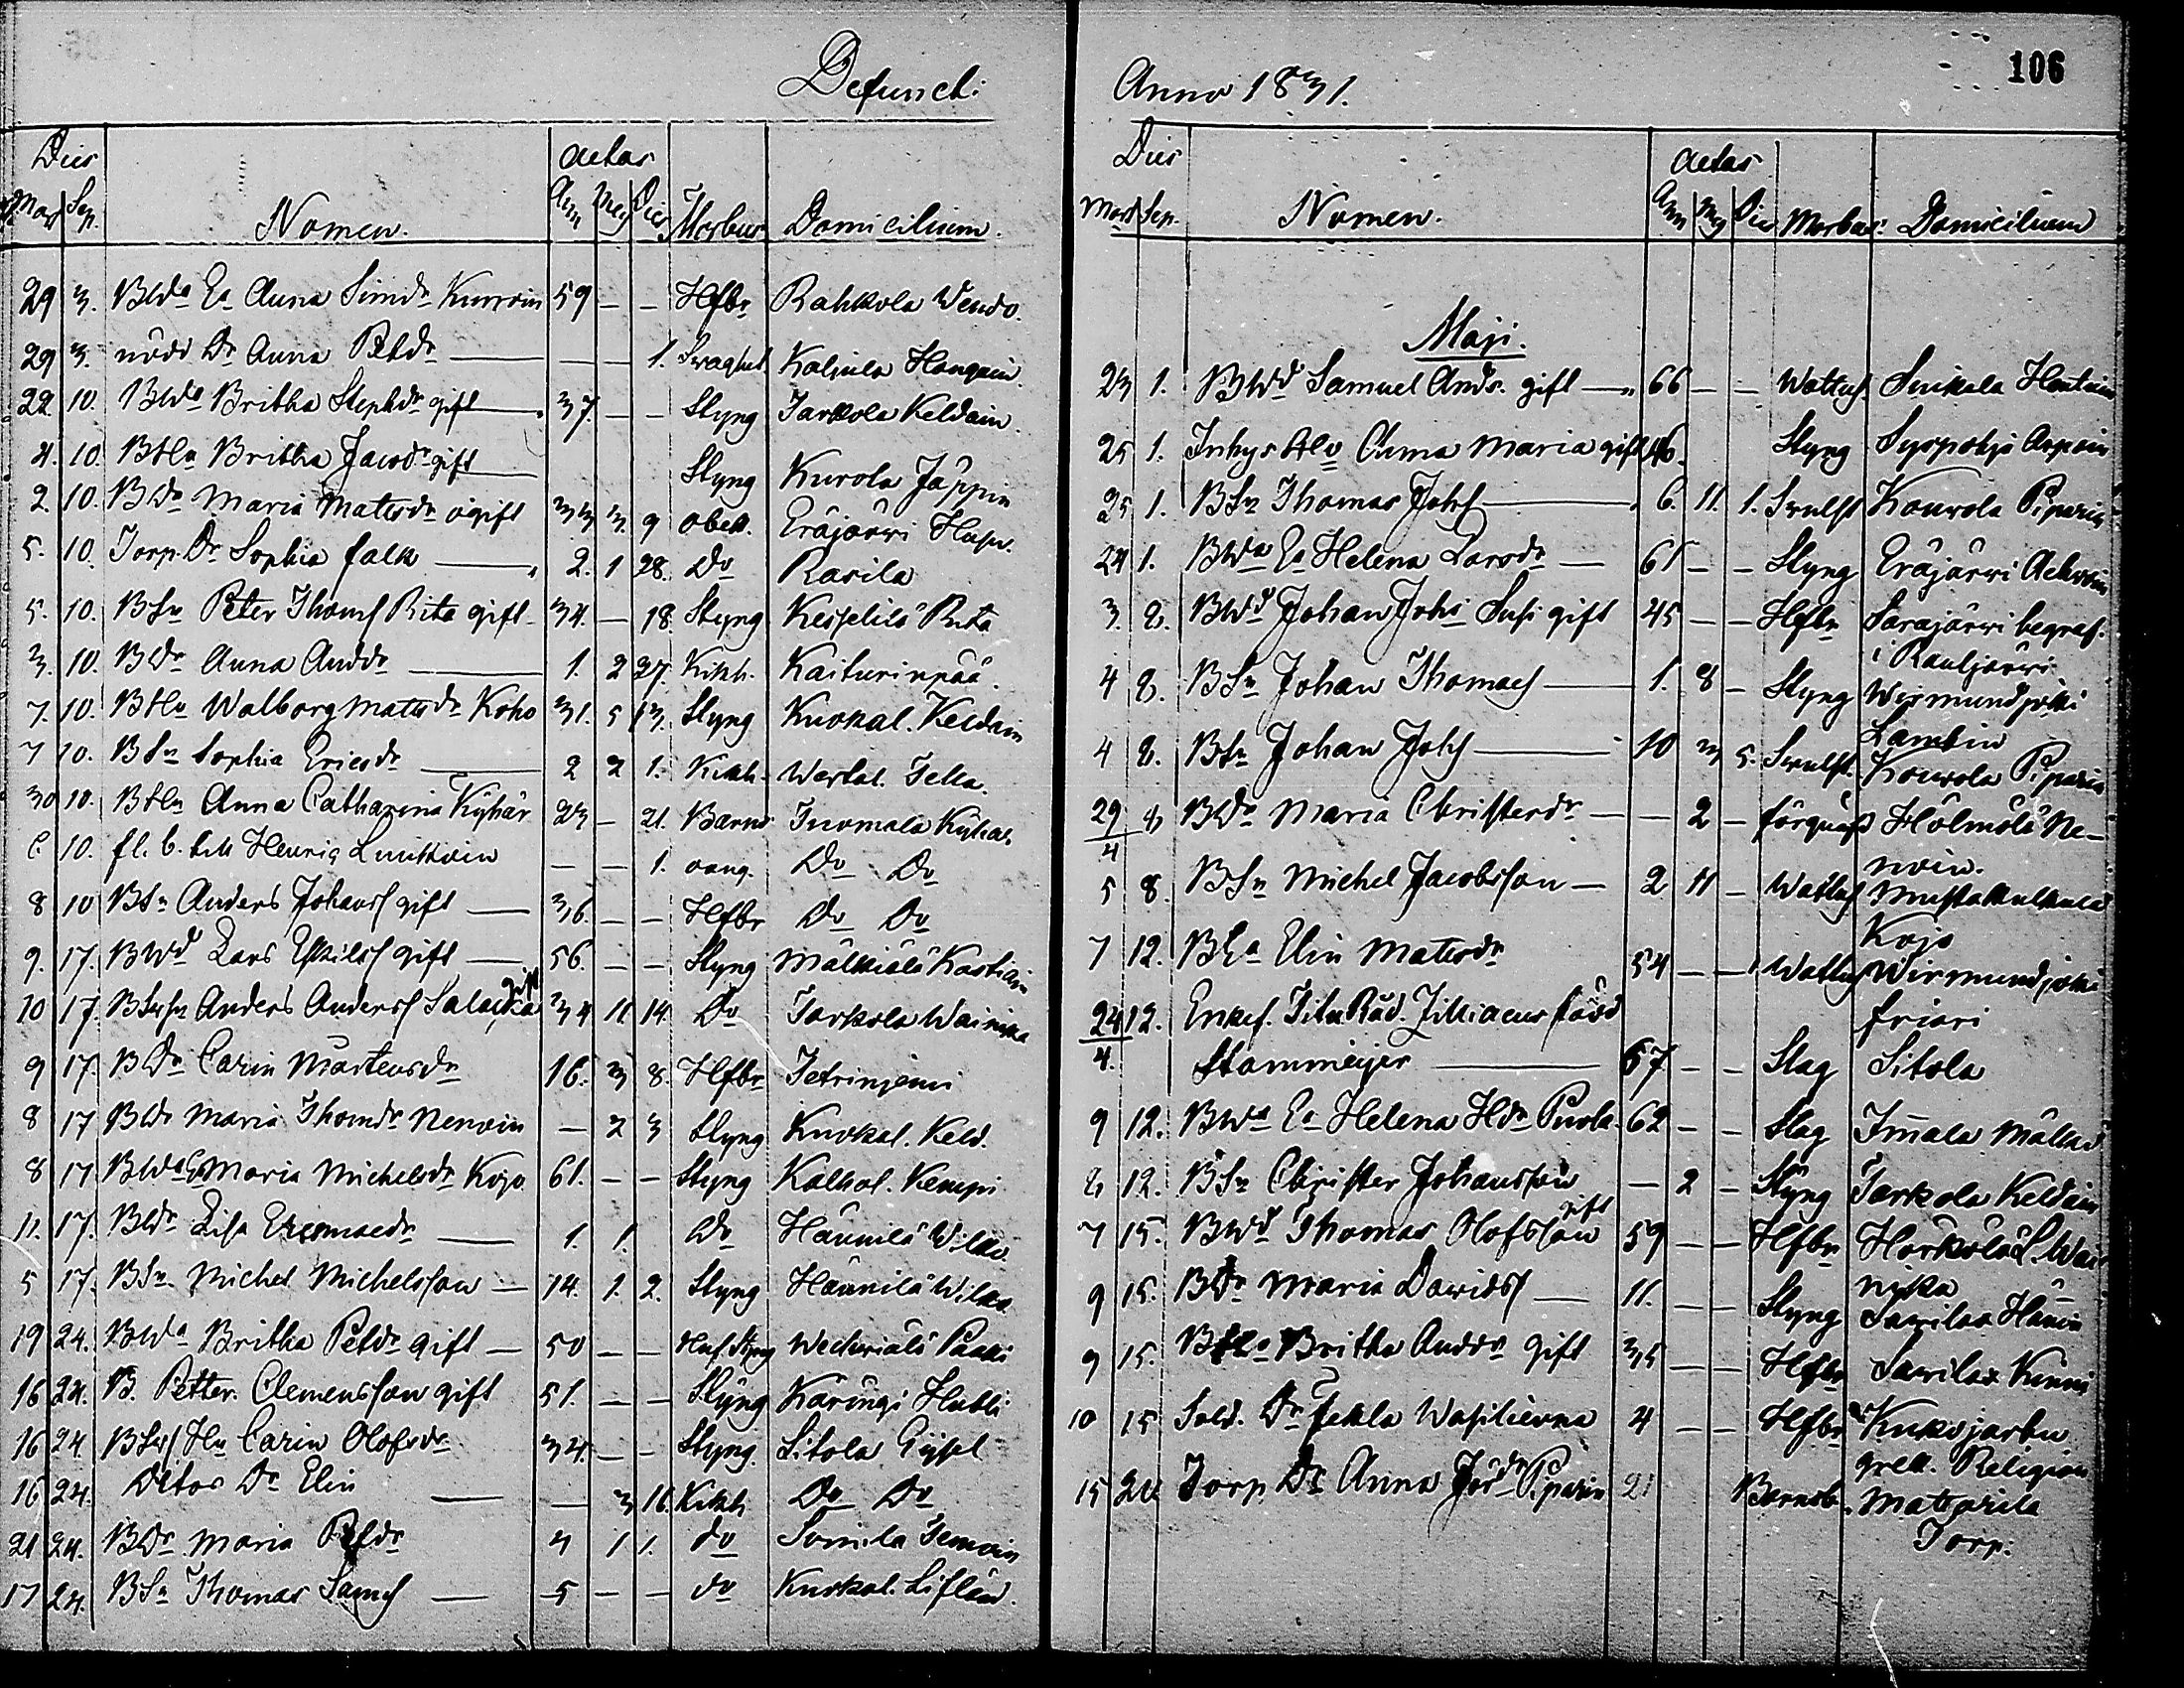 Defuncti
Dies Aetas
Mort Sep. Nomen. Ann Men Dies Morbus Domicilium.
29 3. BWda Ea Anna Simdr Kurvin 59 — — Hfbr Rahkola Wendo.
29 3. nödd Dr Anna Petdr — — — 1. Swaghet Kaljula Hongain.
22. 10. BWda Britha Stephdr gift — 37. — — Styng Jarkola Keldain.
4. 10. BHu Britha Jacodr gift — Styng Kurola Jäppin
2. 10. BDr Maria Matsdr ogift 33 3. 9 obek. Eräjärvi Hapo.
5. 10. Torp. Dr Sophia Falk — 2. 1 28. Do Rasila
5. 10. BSn Peter Thoms Rita gift — 34. — 18. Styng Kesselilä Rita
3. 10. BDr Anna Anddr — 1. 2 27. Kikh. Kaiturinpää.
7. 10. BHu Walborg Matsdr Koho 31. 5 13. Styng Kurkal. Keldain
7 10. BSn Sophia Ericsdr — 2 2 1. Kikh. Wertal. Tella.
30 10. BHu Anna Catharina Kyhär 23 — 21. Barns Inomala Kyhär.
6. 10. fl. b. till Henric — — 1. oäng. Do Do
8 10 BSn Anders Johanss gift — 36. — — Hfbr Do Do
9. 17. BWd Lars Eskilss gift — 56. — — Styng Mälkiälä Kostiain
10 17. BSwsn Anders Anderss Salacka gift 34 11 14. Do Jarkola Wainikka
9 17. BDr Carin Mårtensdr 16. 3 8. Hfbr Jetrinjemi
8 17 BDr Maria Thomdr Nenoin — 2 3 Styng Kurkal. Keld.
8 17 BWda Ea Maria Michelsdr Kojo 61. — — Styng Kalkal. Kempi
11. 17. BDr Lisa — 1. 1. Do Hännilä Wilko.
5 17. BSn. Michel Michelsson — 14. 1. 2. Styng Hännilä Wilko
19 24. BWda Britha Petdr gift — 50 — — Hufstyng Paaki
16 24. B. Petter. Clemensson gift 51. — — Styng Käringi Hutti
16 24 BSws Hu Carin Olofsdr 34. — — Styng. Sitola
16 24. Ditos Dr Elin — — 3 16. Kikh Do Do
21 24. BDr Maria Petdr 4 1 1. do Somila Temoin
17 24. BSn Thomas Sams — 5 — — do Kurkal. Lifländ.
106
Anno 1831.
Dies Aetas
Mort Sep. Nomen. Ann Mens Dies Morbus: Domicilium
Maji.
23 1. BWd Samuel Ands. gift — 66 — — Wattus. Suikala
25 1. Inhys Hu Anna Maria gift 46. Styng Syypohja Arpoin
25 1. BSn Thomas Johs — 6. 11. 1. Swulst Kourola Piparin
24 1. BWda Ea Helena Larsdr — 61 — — Styng Eräjärvi Achvoin
3. 8. BWd Johan Johs Susi gift 45 — — Hfbr Sarajärvi begraf.
i Rautjärvi
4 8. BSn Johan Thomass — 1. 8 — Styng Wirmundjoki
Lambin
4 8. BSn Johan Johs — 10 3 5. Swulst. Kourola Piparin
29/4 8 BDr Maria Christerdr — — 2 — förquäfd Hölmölä Ne-
noin.
5 8. BSn Michel Jacobsson — 2 11 — Wattus Mustakulkula
Kojo
7 12. BEa Elin Matsdr 54 — — Wattus Wirmundjoki
Friari
24/4. 12. Enkef. Titu. Råd. Zilliacus född
Stammeijer — 67 — — Slag Sitola
9 12. BWda Ea Helena Hdr Purla. 62 — — Slag Immala Mälkiä
8 12. BSn Christer Johansson — 2 — Styng Jarkola Keldain
7 15. BWd Thomas Olofsson gift 59 — — Hfbr Hörkölä L. Wai
nika
9 15. BDr Maria Davids — 11. — — Styng Sawilax Hänin
9 15. BHu Britha Anddr gift 35 — — Hfbr Sawilax Kinni
10 15 Sold. Dr Fekla Wasilievna 4 — — Hfbr Kukojarbu
grek. Religion
15 24 Torp. Dr Anna Piparin 21 Barnsb. Matsarila
Torp.